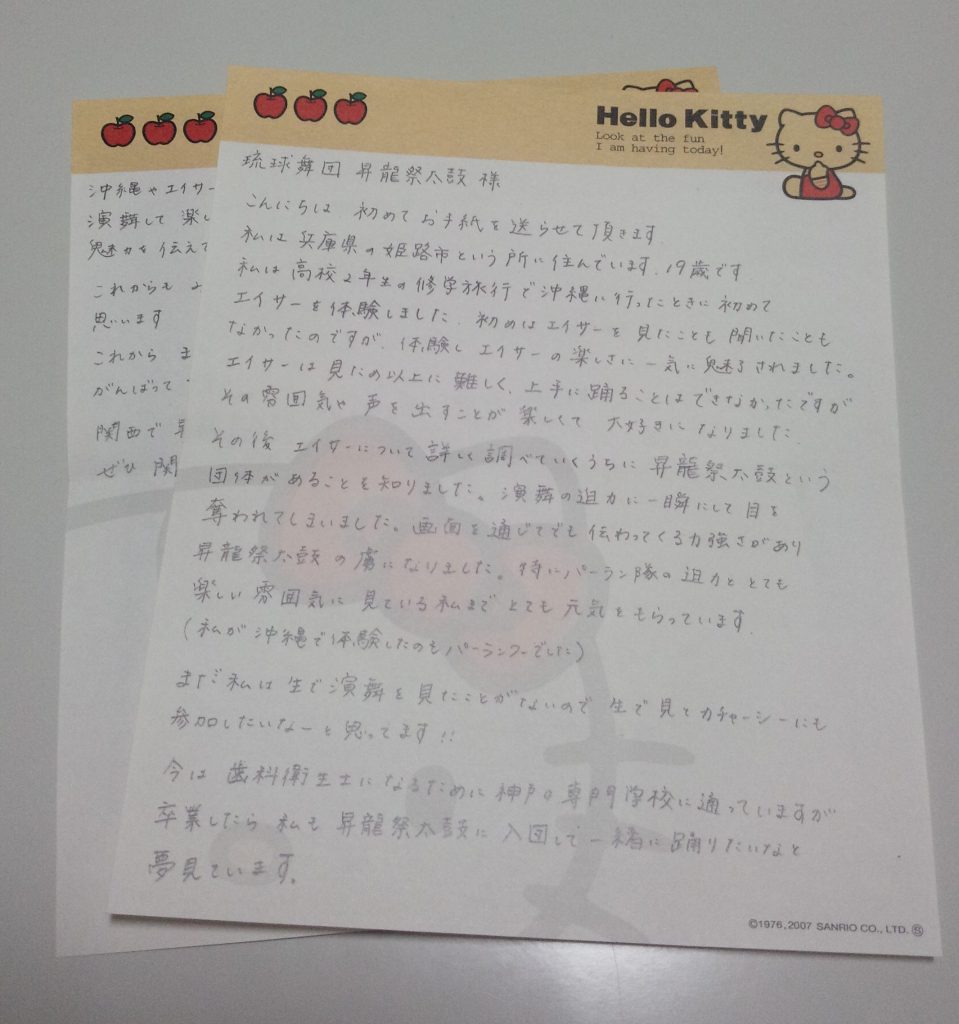 Hello Kitty
Look at the fun
I am having today!
琉球舞団 昇龍祭太鼓 様
こんにちは 初めてお手紙を送らせて頂きます.
私は兵庫県の姫路市という所に住んでいます. 19歳です
私は高校2年生の修学旅行で沖縄に行ったときに初めて
エイサーを体験しました. 初めはエイサーを見たことも聞いたことも
なかったのですが、体験しエイサーの楽しさに一気に魅了されました。
エイサーは見ため以上に難しく、上手に踊ることはできなかったですが
その雰囲気や声を出すことが楽しくて 大好きになりました.
その後 エイサーについて詳しく調べていくうちに 昇龍祭太鼓という
団体があることを知りました。演舞の迫力に一瞬にして目を
奪われてしまいました。画面を通じてでも伝わってくる力強さがあり
昇龍祭太鼓の虜になりました。特にパーラン隊の迫力ととても
楽しい雰囲気に見ている私までとても元気をもらっています.
(私が沖縄で体験したのもパーランクーでした)
まだ私は生で演舞を見たことがないので生で見てカチャーシーにも
参加したいなーと思ってます!!
今は歯科衛生士になるために神戸の専門学校に通っていますが
卒業したら私も昇龍祭太鼓に入団して一緒に踊りたいなと
夢見ています。
©1976,2007 SANRIO CO., LTD. Ⓢ
沖縄やエイサー
演舞して楽し
魅力を伝えて
これからも
思います
これから ま
がんばって
関西で
ぜひ 関